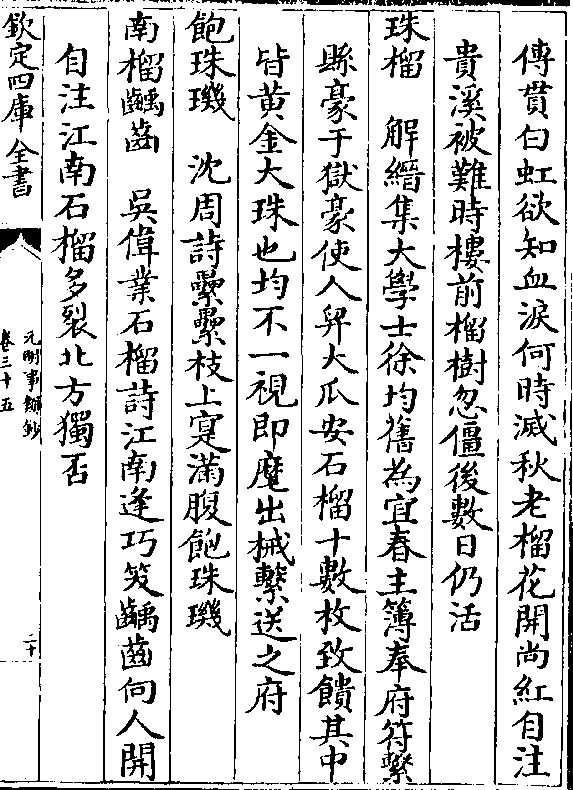 傳貫白虹欲知血淚何時滅秋老榴花開尚紅自注
貴溪被難時樓前榴樹忽僵後數日仍活
珠榴　解縉集大學士徐均舊為宜春主簿奉府符繫
縣豪于獄豪使人舁大瓜安石榴十數枚致饋其中
皆黄金大珠也均不一視即麾出械繫送之府
飽珠璣　沈周詩纍纍枝上寔滿腹飽珠璣
南榴齲齒　吳偉業石榴詩江南逢巧笑齲齒向人開
自注江南石榴多裂北方獨否
欽定四庫全書
元明事類鈔
卷三十五
二十